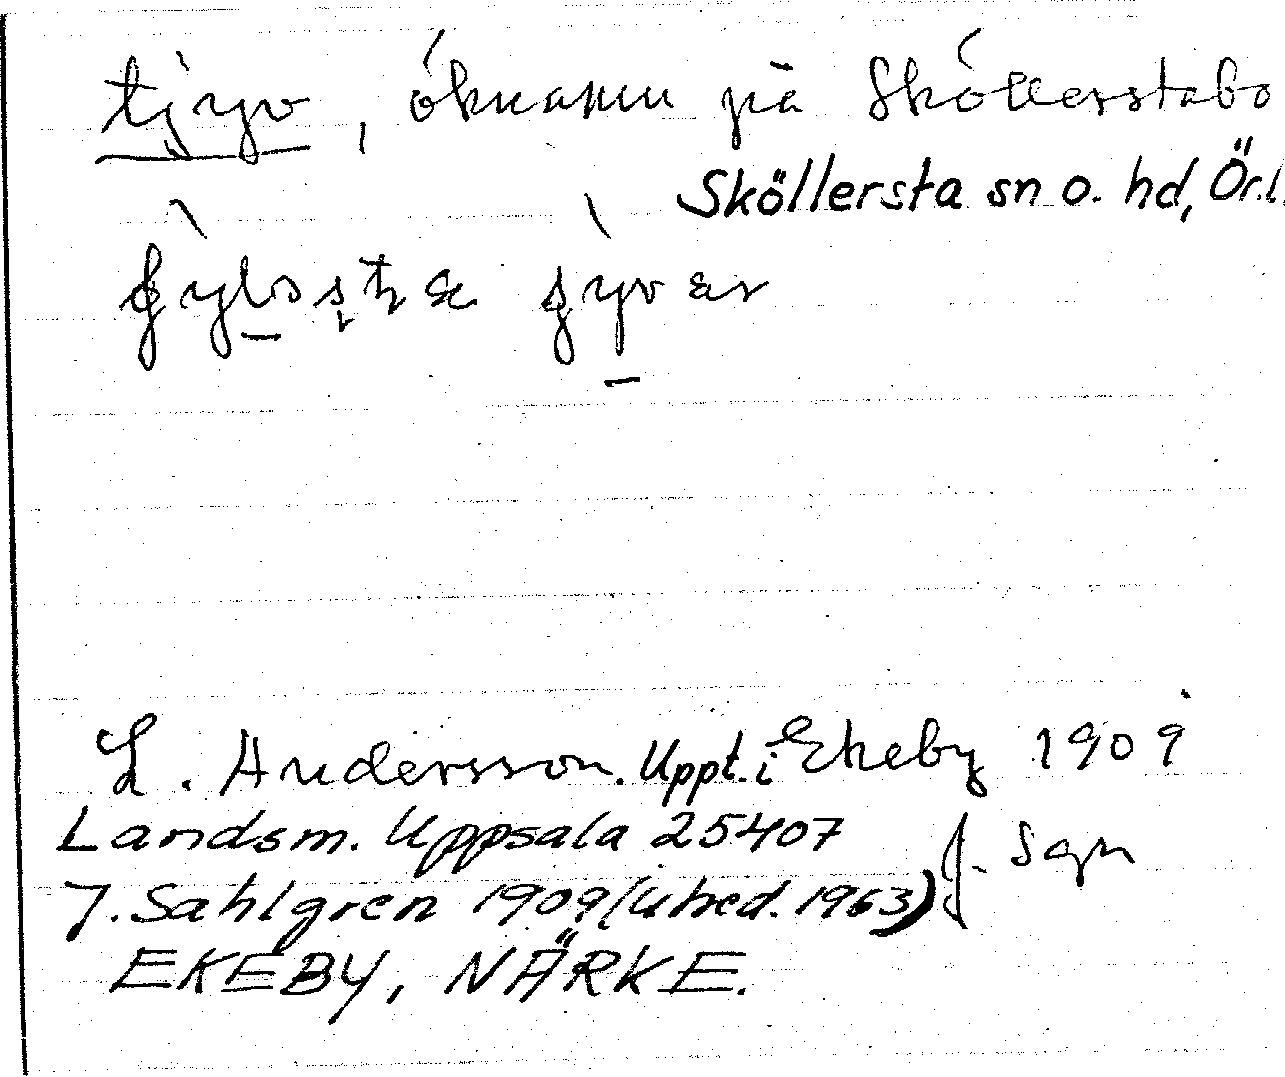 tjyv, öknamn på Sköllerstabo
Sköllersta sn o. hd, Ör.l.
L. Andersson. Uppt. i Ekeby 1909
Landsm. Uppsala 25407
J. Sgn
J. Sahlgren 1909 (utred. 1963)
EKEBY, NÄRKE.